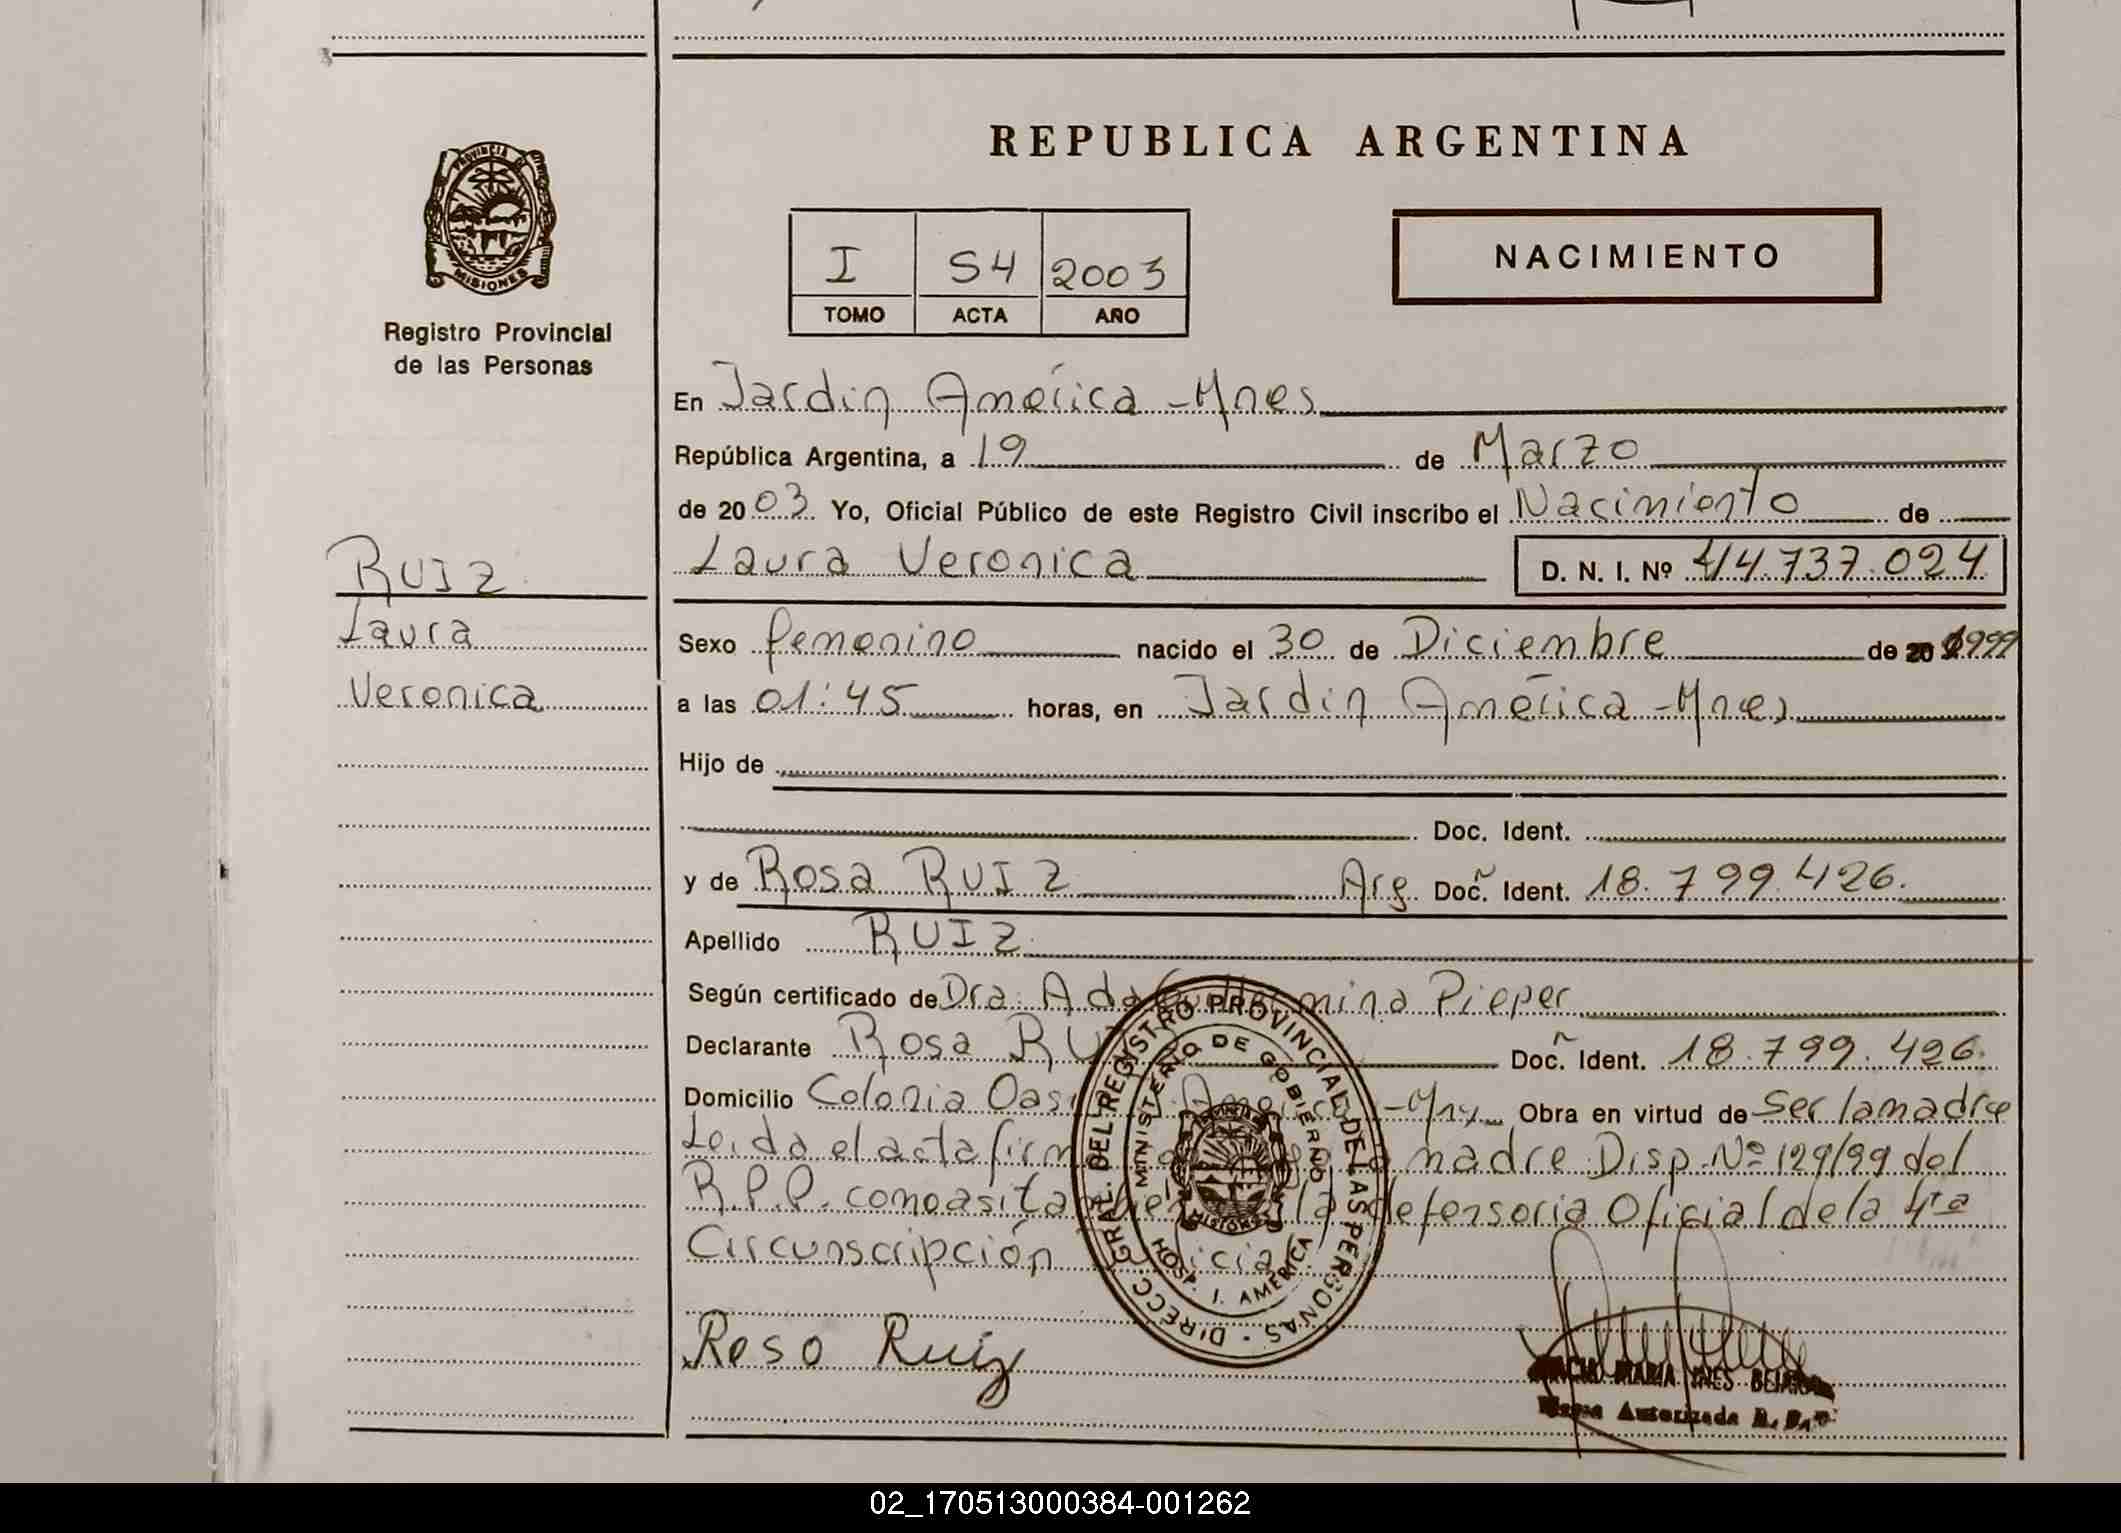 REPUBLICA ARGENTINA
PROVINCIA DE
MISIONES
Registro Provincial
de las Personas
I S4 2003
TOMO ACTA AÑO
NACIMIENTO
En Jardin América - Mnes
República Argentina, a 19 de Marzo
de 2003 Yo, Oficial Público de este Registro Civil inscribo el Nacimiento de
Laura Veronica D. N. I. Nº 44.737.024
RUIZ
Laura
Veronica
Sexo femenino nacido el 30 de Diciembre de 20 1999
a las 01:45 horas, en Jardin América - Mnes
Hijo de
Doc. Ident.
y de Rosa RUIZ Arg. Doc. Ident. 18.799.426.
Apellido RUIZ
Según certificado de Dra. Ada mina Pieper
Declarante Rosa Doc. Ident. 18.799.426.
Domicilio Colonia Obra en virtud de Ser la madre
Leida el acta madre Disp. Nº 129/99 del
R.P.P. como asi la defensoria Oficial de la 4ta
Circunscripción
DIRECC. GRAL. DEL REGISTRO PROVINCIAL DE LAS PERSONAS
MINISTERIO DE GOBIERNO
MISIONES
HOSP. I. AMERICA
Roso Ruiz
MARIA INES
Autorizada R. P. P.
02_170513000384-001262